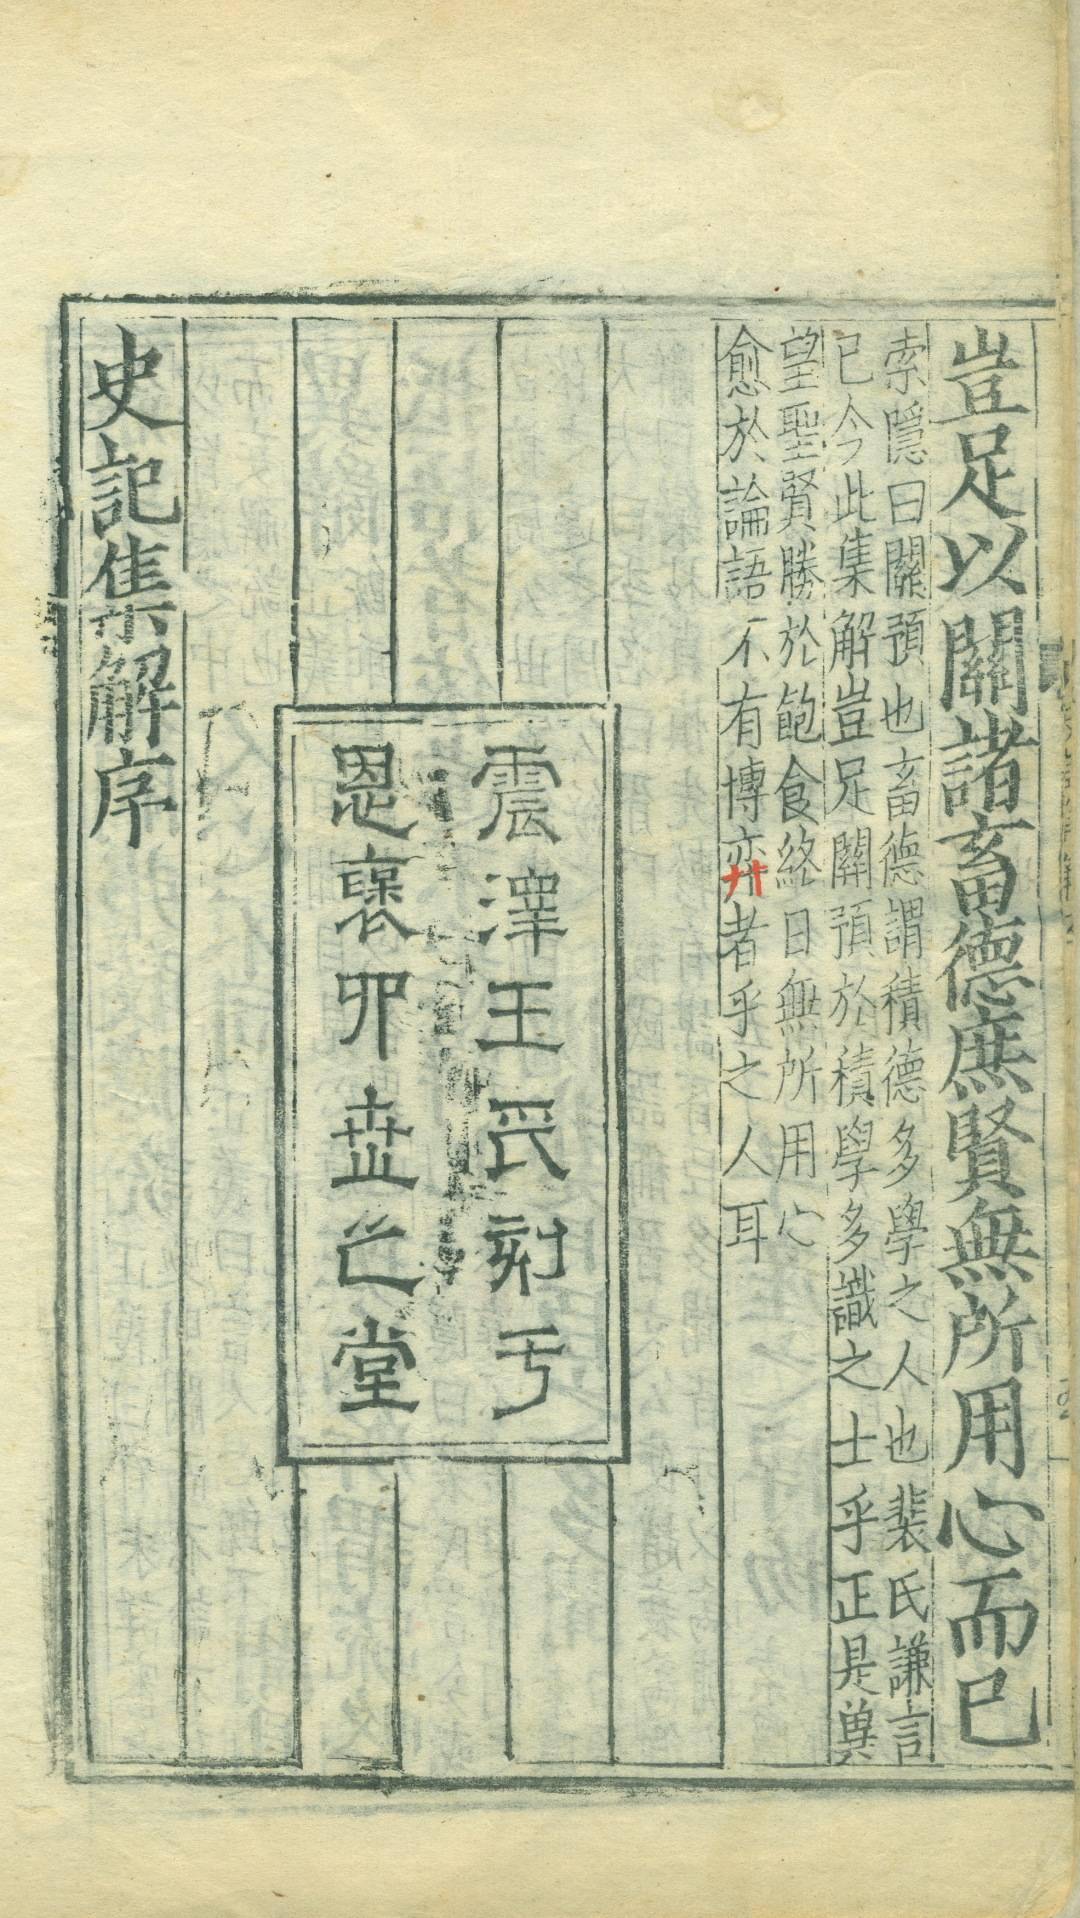 豈足以關諸畜德庶賢無所用心而已
索隱曰關預也畜德謂積德多學之人也裴氏謙言
已今此集解豈足關預於積學多識之士乎正是兾
望聖賢勝於飽食終日無所用心
愈於論語不有博弈者乎之人耳
震澤王氏刻于
恩褒四世之堂
史記集解序